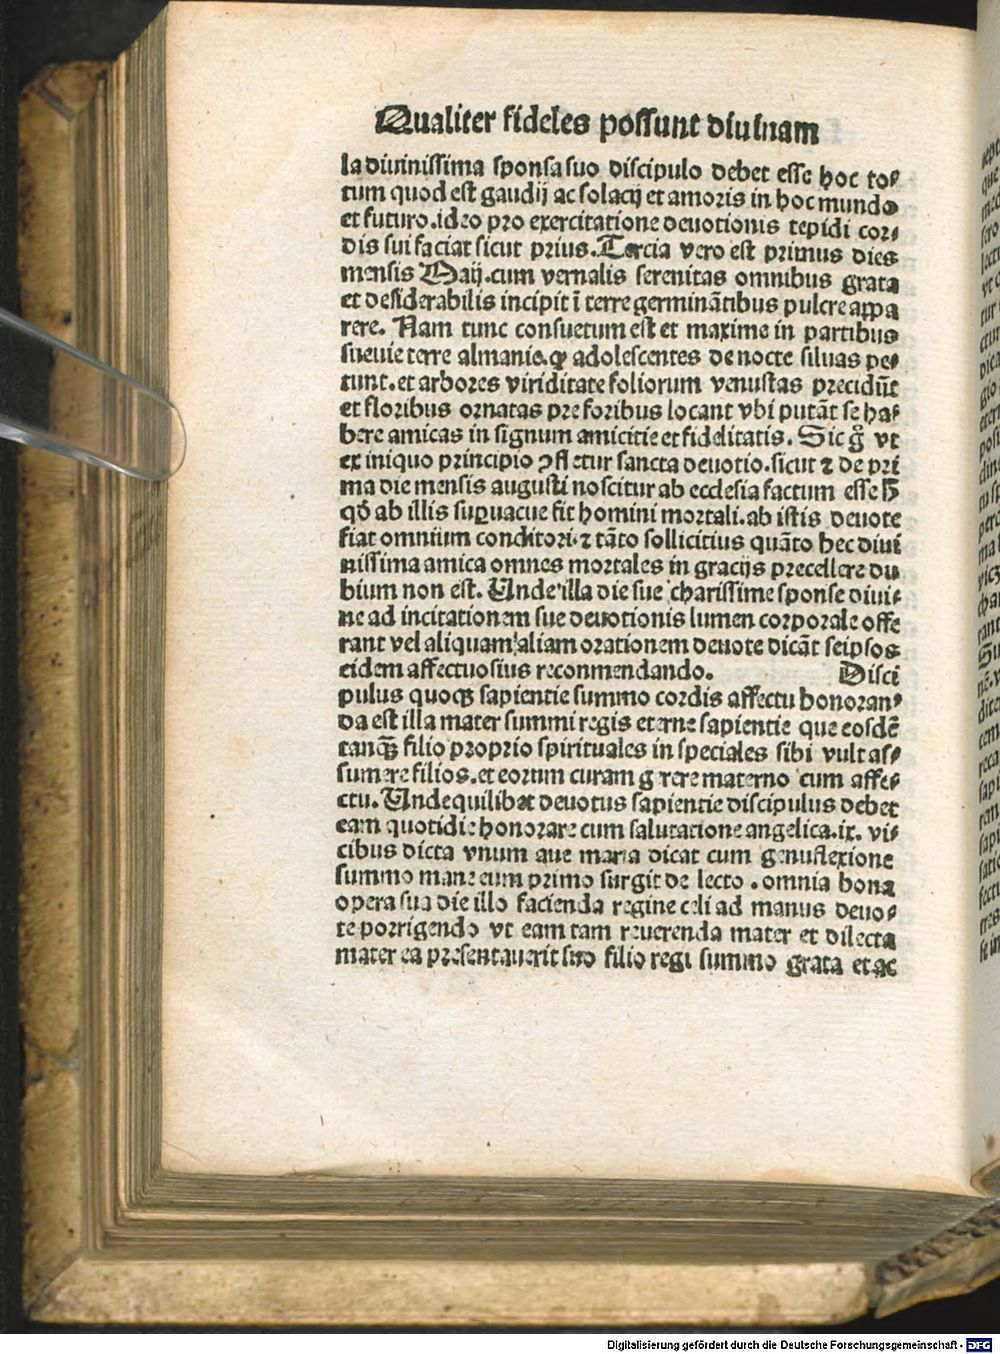 Qualiter fideles possunt diuinam
la diuinissima sponsa suo discipulo debet esse hoc to⸗
tum quod est gaudij ac solacij et amoris in hoc mundo
et futuro.ideo pro exercitatione deuotionis tepidi cor⸗
dis sui faciat sicut prius.Tercia vero est primus dies
mensis Maij.cum vernalis serenitas omnibus grata
et desiderabilis incipit ī terre germinātibus pulcre appa
rere. Nam tunc consuetum est et maxime in partibus
sueuie terre almanie.ꝙ adolescentes de nocte siluas pe⸗
tunt.et arbores viriditate foliorum venustas precidūt
et floribus ornatas pre foribus locant vbi putāt se ha⸗
bere amicas in signum amicitie et fidelitatis. Sic gͦ vt
ex iniquo principio ꝯfletur sancta deuotio.sicut ⁊ de pri
ma die mensis augusti noscitur ab ecclesia factum esse ħ
qd̄ ab illis suꝑuacue fit homini mortali.ab istis deuote
fiat omnium conditori.⁊ tāto sollicitius quāto hec diui
nissima amica omnes mortales in gracijs precellere du
bium non est. Unde illa die sue charissime sponse diui⸗
ne ad incitationem sue deuotionis lumen corporale offe
rant vel aliquam aliam orationem deuote dicāt seipsos
eidem affectuosius reconmendando. Disci
pulus quoqꝫ sapientie summo cordis affectu honoran⸗
da est illa mater summi regis eterne sapientie que eosdē
tanqꝫ̄ filio proprio spirituales in speciales sibi vult as⸗
sumere filios.et eorum curam gerere materno cum affe⸗
ctu. Unde quilibet deuotus sapientie discipulus debet
eam quotidie honorare cum salutatione angelica.ix. vi⸗
cibus dicta vnum aue maria dicat cum genuflexione
summo mane cum primo surgit de lecto . omnia bona
opera sua die illo facienda regine celi ad manus deuo⸗
te porrigendo vt eam tam reuerenda mater et dilecta
mater ea presentauerit suo filio regi summo grata et ac
Digitalisierung gefördert durch die Deutsche Forschungsgemeinschaft - DFG